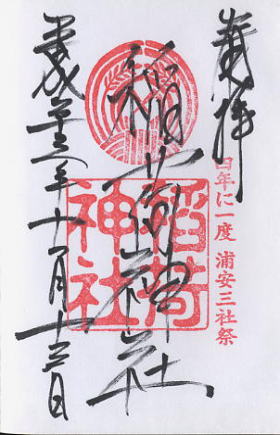 奉拝
四年に一度 浦安三社祭
稲荷神社
稲荷
神社
平成二十三年十一月十三日